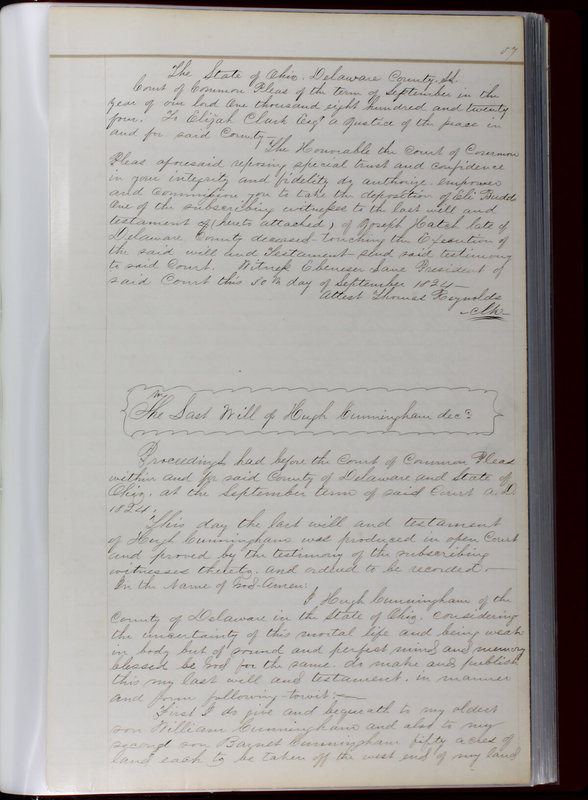 87
The State of Ohio. Delaware County. Sd.
Court of Common Pleas of the term of September in the
year of our lord One thousand eight hundred and twenty
four. To Elijah Clark Esqr a Justice of the peace in
and for said County,—
The Honorable the Court of Common
Pleas aforesaid reposing special trust and confidence
in your integrity and fidelity do authorize empower
and commission you to take the deposition of Eli Budd
One of the subscribing witnesses to the last will and
testament of (hereto attached) of Joseph Hatch late of
Delaware County deceased touching the Execution of
the said will and Testament send said testimony
to said Court. Witness Ebeneser Lane President of
said Court this 30th day of September 1824—
Attest Thomas Reynolds
Clk
The Last Will of Hugh Cunningham decd.
Proceedings had before the Court of Common Pleas
within and for said County of Delaware and State of
Ohio, at the September term of said Court A.D.
1824.
This day the last will and testament
of Hugh Cunningham was produced in open Court
and proved by the testimony of the subscribing
witnesses thereto, and ordered to be recorded.—
In the Name of God Amen:
I Hugh Cunningham of the
County of Delaware in the State of Ohio, considering
the uncertainty of this mortal life and being weak
in body but of sound and perfect mind and memory
blessed be God for the same. do make and publish
this my last will and testament, in manner
and form following-towit:—
First I do give and bequeath to my oldest
son William Cunningham and also to my
second son Barnet Cunningham fifty acres of
land each to be taken off the west end of my land